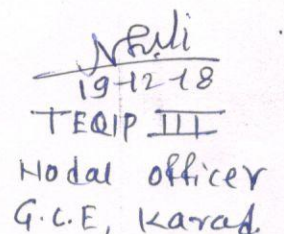 19-12-18
TEQIP III
Nodal officer
G.C.E, Karad.